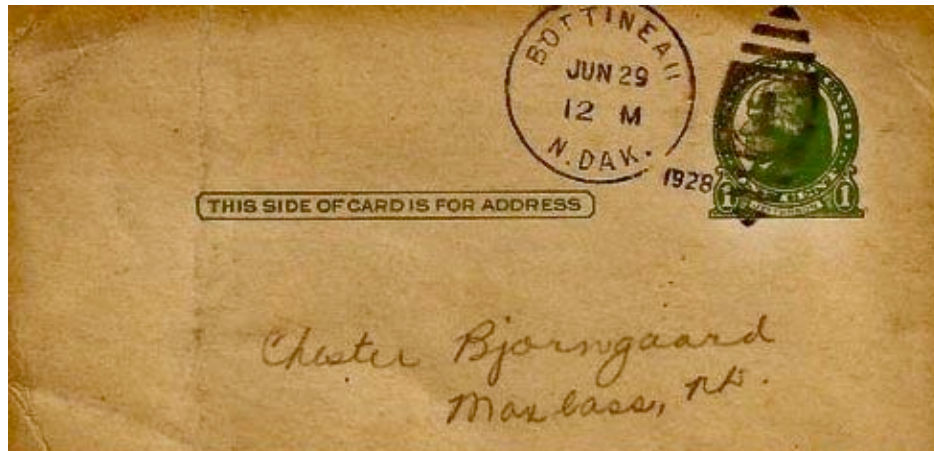 BOTTINEAU
JUN 29
12 M
N. DAK.
1928
1 CENT 1
JEFFERSON
THIS SIDE OF CARD IS FOR ADDRESS
Chester Bjorngaard
Maxbass, ND.